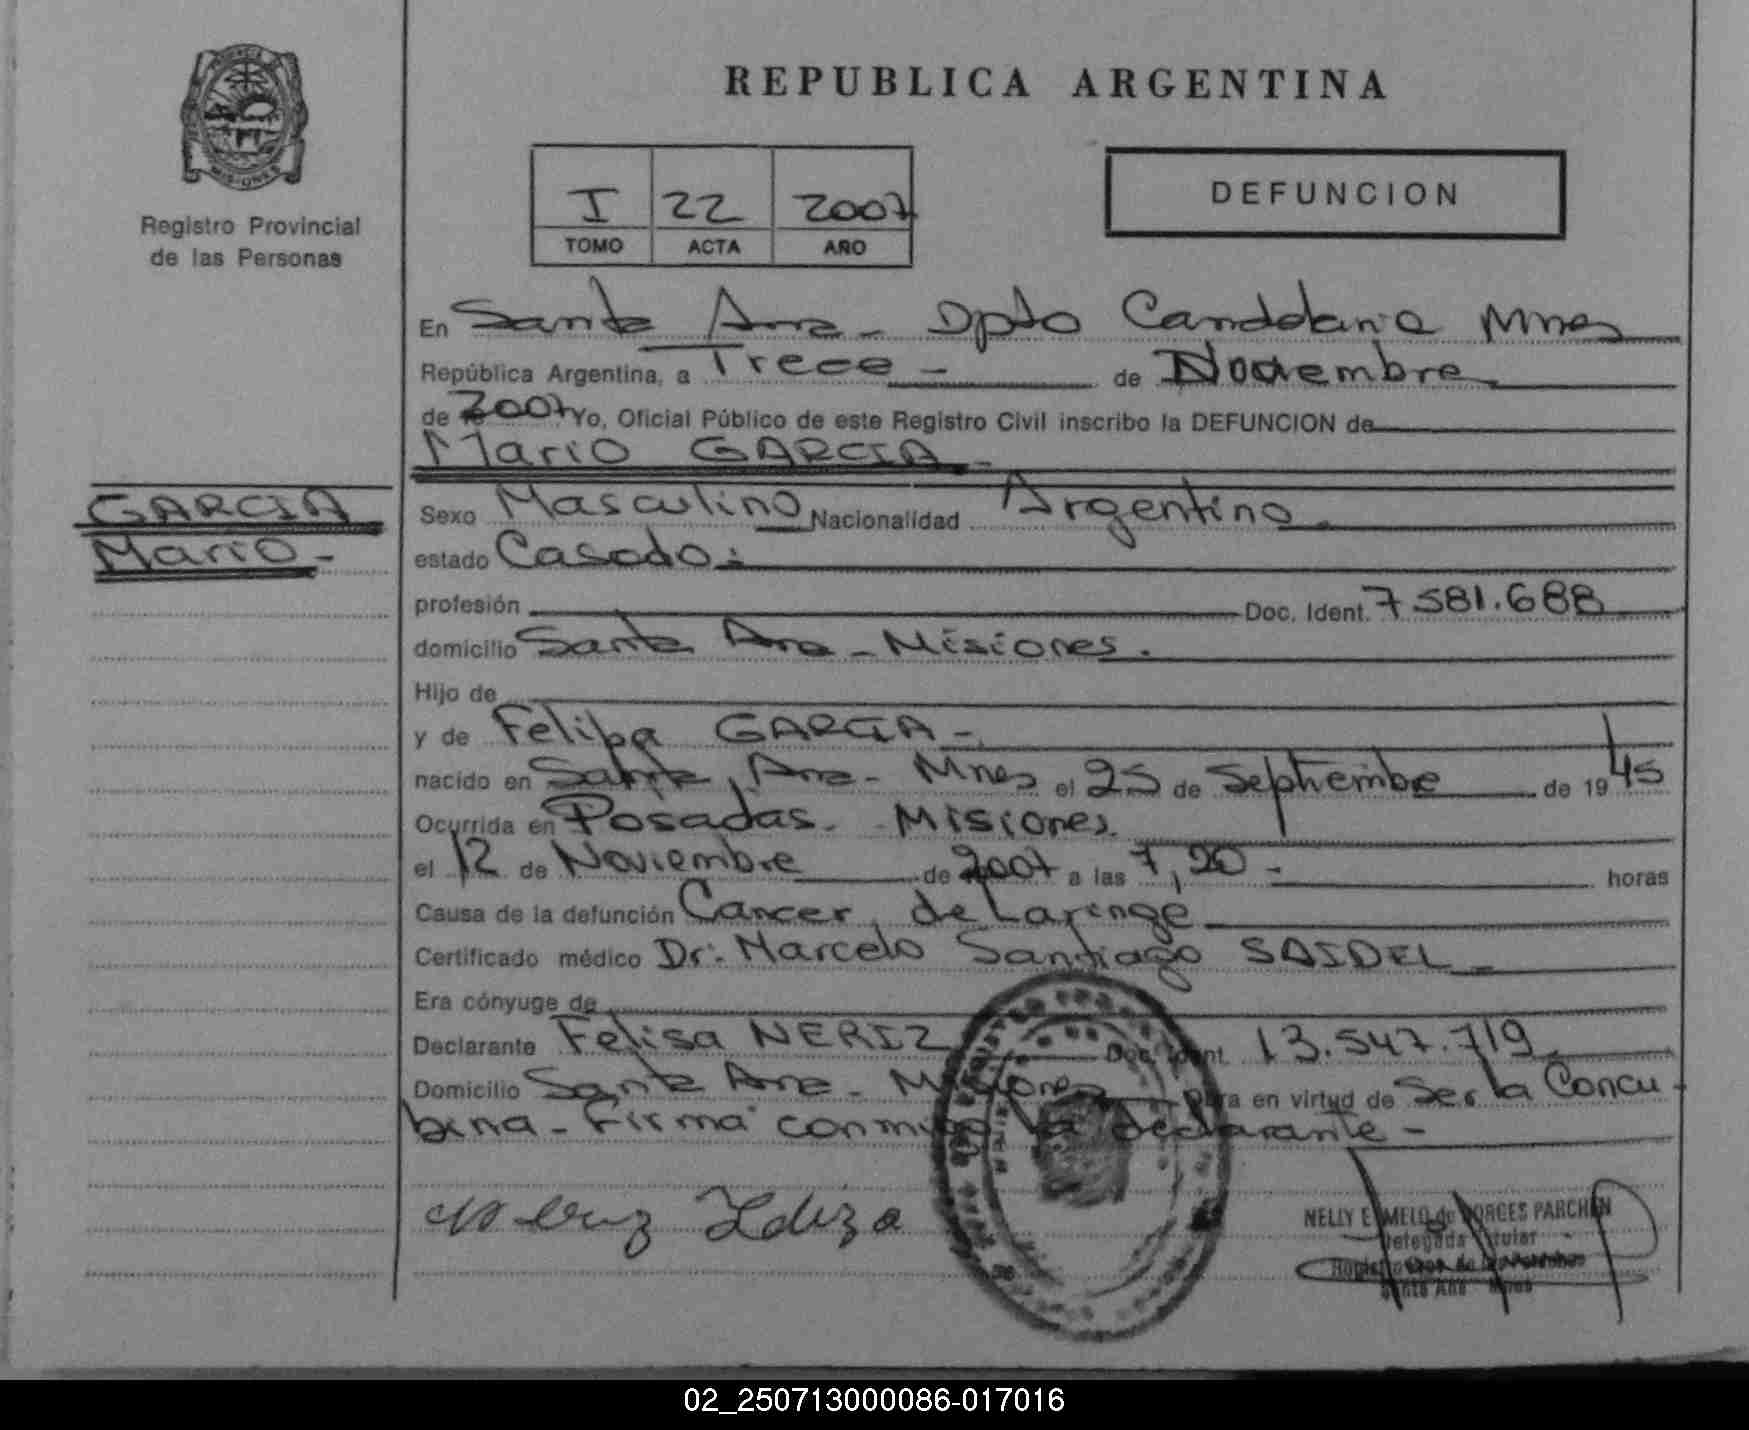 REPUBLICA ARGENTINA
PROVINCIA
MISIONES
Registro Provincial
de las Personas
I 22 2007
TOMO ACTA AÑO
DEFUNCION
En Santa Ana - Dpto Candelaria Mnes
República Argentina, a Trece - de Noviembre
de 2007 Yo, Oficial Público de este Registro Civil inscribo la DEFUNCION de
Mario GARCIA -
GARCIA
Mario -
Sexo Masculino Nacionalidad Argentino.
estado Casado:
profesión Doc. Ident. 7.581.688
domicilio Santa Ana - Misiones.
Hijo de
y de Felipa GARCIA -
nacido en Santa Ana - Mnes el 25 de Septiembre de 1945
Ocurrida en Posadas - Misiones.
el 12 de Noviembre de 2007 a las 7,20 - horas
Causa de la defunción Cancer de Laringe
Certificado médico Dr: Marcelo Santiago SAIDEL -
Era cónyuge de
Declarante Felisa NERIZ Doc. Ident. 13.547.719
Domicilio Santa Ana - Misiones Obra en virtud de Ser la Concu-
bina - Firma conmigo la declarante -
NELLY E. MELO de BORGES PARCHEN
Delegada Titular
Registro Prov. de las Personas
Santa Ana Mnes
02_250713000086-017016